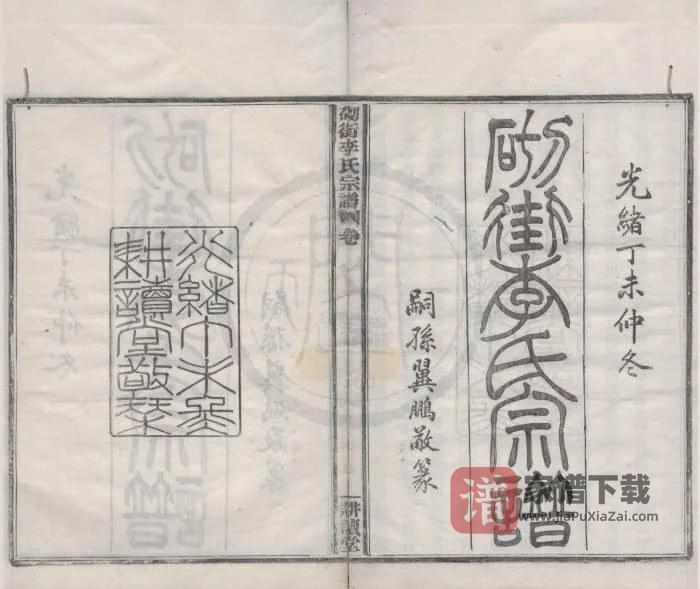 光緒丁未仲冬
砌街李氏宗譜
嗣孫翼鵬敬篆
砌街李氏宗譜
卷
耕讀堂
光緒丁未冬
耕讀堂敬栞
家谱下载
www.JiaPuXiaZai.com